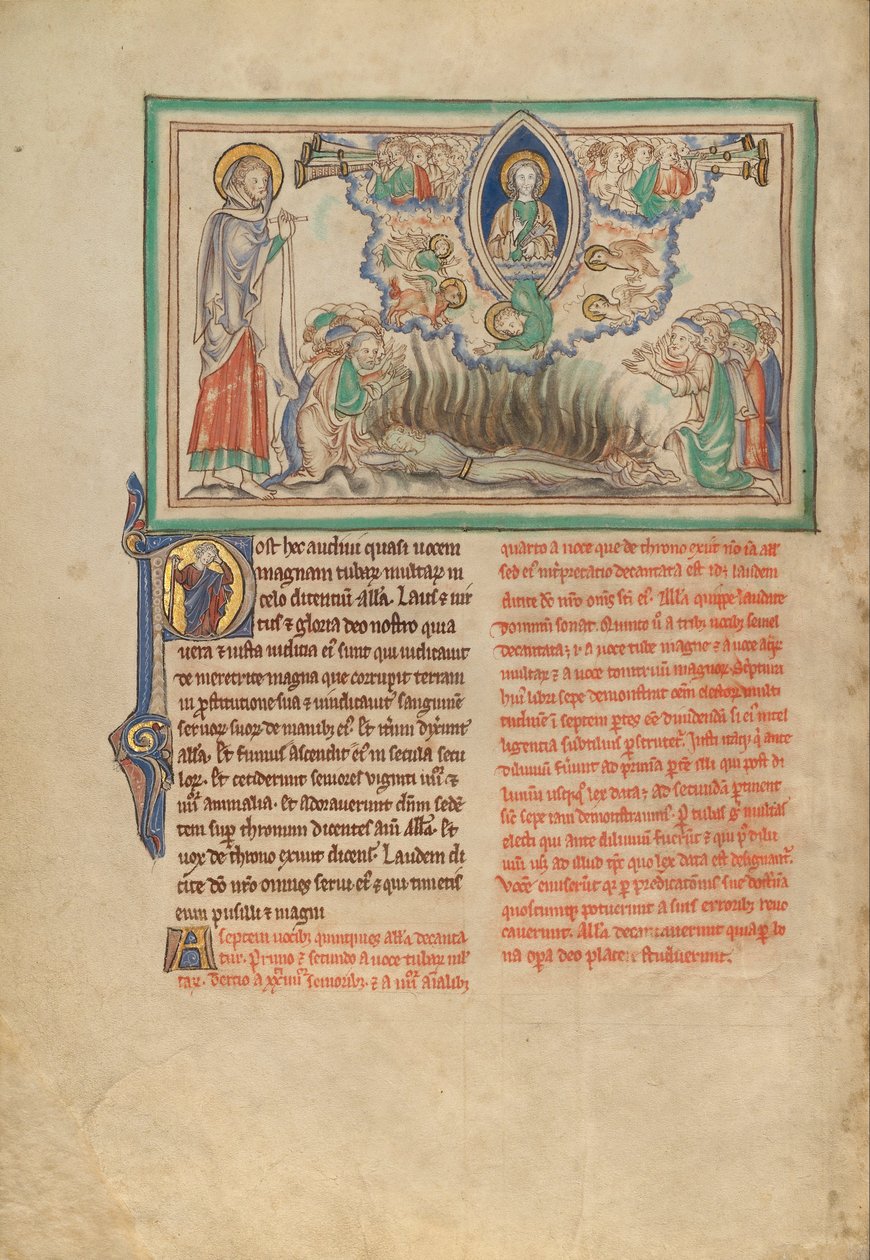 Post hec audiui quasi uocem
magnam tubar multar in
celo dicentiu all'a. Laus ⁊ uir
tus ⁊ gloria deo nostro quia
uera ⁊ iusta iudicia ei' sunt qui iudicauit
de meretrice magna que corrupit terram
in prostitutione sua ⁊ uindicauit sanguinē
seruor suor de manib; ei'. Et itm dixerunt
all'a. Et fumus ascendit ei' in secula secu
lor. Et ceciderunt seniores uiginti iiii'or ⁊
iiii'or animalia. et adorauerunt dnm sedē
tem sup thronum dicentes am all'a. Et
uox de throno exiuit dicens. Laudem di
cite dō nrō omnes serui ei' ⁊ qui timetis
eum pusilli ⁊ magni
A septem uocib; quinquies all'a decanta
tur. Primo ⁊ secundo a uoce tubar mul
tar. Tertio a xxiiii'or senioribȝ. ⁊ a iiii'or aīalibȝ
quarto a uoce que de throno exiuit nō ia all'
sed ei' int'pretatio decantata est id; laudem
dicite dō nrō om̄s sc̄i ei'. All'a quippe laudate
dominum sonat. Quinto ū a trib; uocib; semel
decantata; i. a uoce tube magne ⁊ a uoce aqr
multar ⁊ a uoce tonitruū magnor. Scriptura
hui' libri sepe demonstrat elector multi
tudinē ī septem partes eē diuidendā si ei' intel
ligentia subtilius pscrutet'. Iusti itaq; q ante
diluuiū fuerunt ad primā p'tē illi qui post di
luuiū usq; quo lex data; ad secundā ptinent
sic sepe iam demonstrauim'. P tubas g' multas
electi qui ante diluuiū fuerūt ⁊ qui p' dilu
uiū usq; ad illud tp'c quo lex data est designant'.
Voce emiserūt q; p predicatōnis sue doctrinā
quoscumq; potuerunt a suis errorib; reuo
cauerunt. All'a decantauerunt quia p bo
na opa deo placere studuerunt.